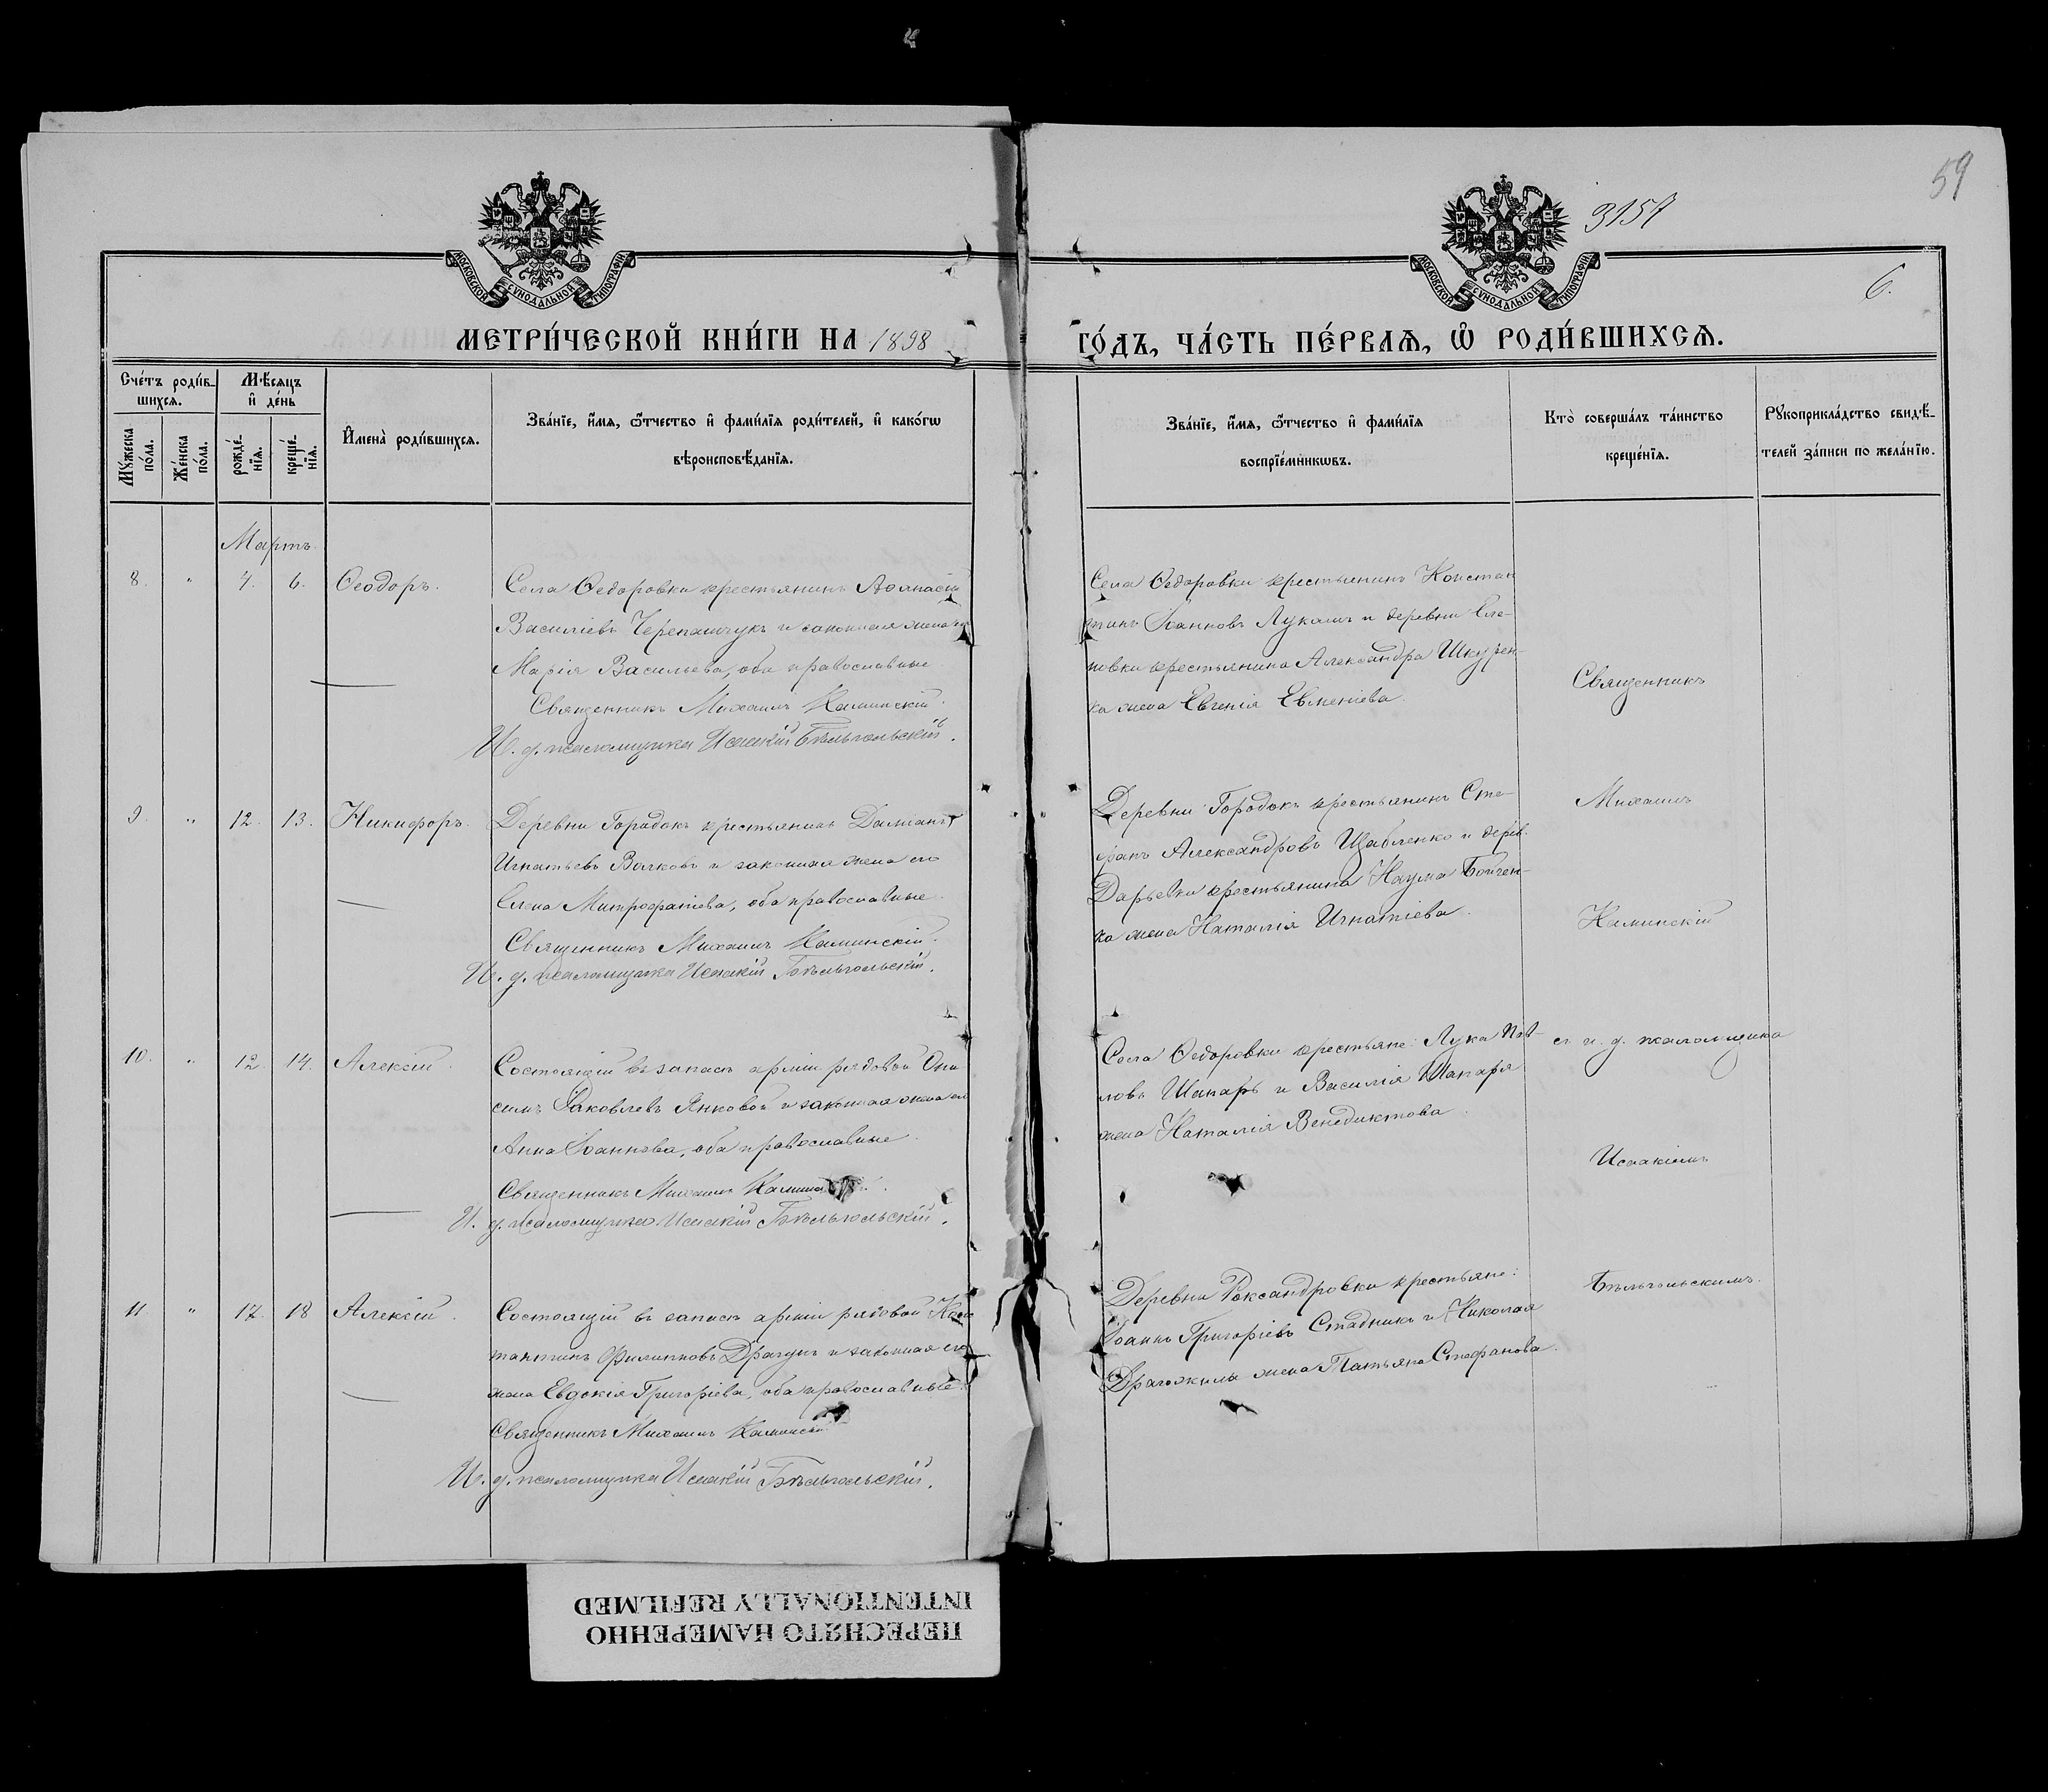 59
3157
6.
МОСКОВСКОЙ СѴНОДАЛЬНОЙ ТИПОГРАФІИ
МОСКОВСКОЙ СѴНОДАЛЬНОЙ ТИПОГРАФІИ
МЕТРИ́ЧЕСКОЙ КНИ́ГИ НА 1898 ГО́ДЪ, ЧА́СТЬ ПЕ́РВАѦ, Ѽ РОДИ́ВШИХСѦ.
Сче́тъ роди́в-
шихсѧ.
Мѣ́сяцъ
и҆ де́нь
Мꙋжеска по́ла.
Же́нска по́ла.
рожде́-
нїѧ.
креще́-
нїѧ.
И҆мена̀ роди́вшихсѧ.
Зва́нїе, и҆́мѧ, ѻ҆́тчество и҆ фами́лїѧ роди́телей, и҆ како́гѡ
вѣроисповѣ́данїѧ.
Зва́нїе, и҆́мѧ, ѻ҆́тчество и҆ фами́лїѧ
воспрїе́мникѡвъ.
Кто̀ соверша́лъ та́инство
креще́нїѧ.
Рꙋкоприкла́дство свидѣ́-
телей за́писи по жела́нїю.
Мартъ.
8. " 4. 6. Ѳеодоръ.
Села Ѳедоровки крестьянинъ Аѳанасій
Василіевъ Черепащукъ и законная жена его
Марія Васильева, оба православные
Священникъ Михаилъ Каминскій.
И. д. псаломщика Исаакій Бѣльгольскій.
Села Ѳедоровки крестьянинъ Констан
тинъ Іоанновъ Лукашъ и деревни Еле-
новки крестьянина Александра Шкурен-
ка жена Евгенія Евменіева.
Священникъ
9. " 12. 13. Никифоръ.
Деревни Городокъ крестьянинъ Даміанъ
Игнатьевъ Волковъ и законная жена его
Елена Митрофанова, оба православные.
Священникъ Михаилъ Каминскій.
И. д. псаломщика Исаакій Бѣльгольскій.
Деревни Городокъ крестьянинъ Сте-
фанъ Александровъ Щабленко и дерев.
Дарьевки крестьянина Наума Бойчен-
ка жена Наталія Игнатіева.
Михаилъ
Каминскій
10. " 12. 14. Алексій.
Состоящій въ запасѣ арміи рядовой Они
симъ Яковлевъ Янковой и законная жена его
Анна Іоаннова, оба православные.
Священникъ Михаилъ Каминскій.
И. д. псаломщика Исаакій Бѣльгольскій.
Села Ѳедоровки крестьяне: Лука Пав-
ловъ Шапарь и Василія Шапаря
жена Наталія Венедиктова.
съ и. д. псаломщика
Исаакіемъ
11 " 17. 18 Алексій.
Состоящій въ запасѣ арміи рядовой Конс
тантинъ Филипповъ Драгунъ и законная его
жена Евдокія Григоріева, оба православные.
Священникъ Михаилъ Каминскій
И. д. псаломщика Исаакій Бѣльгольскій.
Деревни Роксандровки крестьяне:
Іоаннъ Григоріевъ Стадникъ и Николая
жена Татьяна Стефанова.
Бѣльгольскимъ.
ПЕРЕСНЯТО НАМЕРЕННО
INTENTIONALLY REFILMED